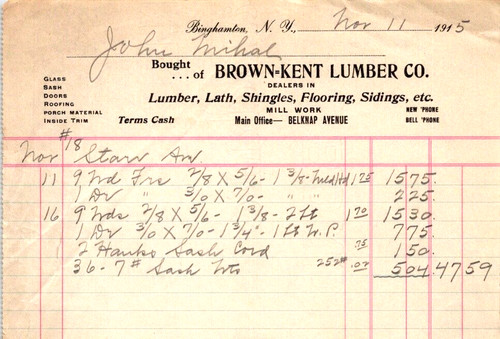 Binghamton, N. Y., Nov 11 1915
John Mihal
Bought
. . . of BROWN-KENT LUMBER CO.
DEALERS IN
Lumber, Lath, Shingles, Flooring, Sidings, etc.
MILL WORK
Main Office— BELKNAP AVENUE
NEW 'PHONE
BELL 'PHONE
GLASS
SASH
DOORS
ROOFING
PORCH MATERIAL
INSIDE TRIM
Terms Cash
#18
Nov Starr Av.
11 9 Wd Frs 2/8 X 5/6 - 1 3/8 - Mld Hd 1 75 15 75
1 Dr " 3/0 X 7/0 - " " 2 25
16 9 Wds 2/8 X 5/6 - 1 3/8 - 2 Lt 1 70 15 30
1 Dr 3/0 X 7/0 - 1 3/4 - 1 Lt W.P. 7 75
2 Hanks Sash Cord .75 1 50
36 - 7# Sash Wts 252# .02 5 04 47 59